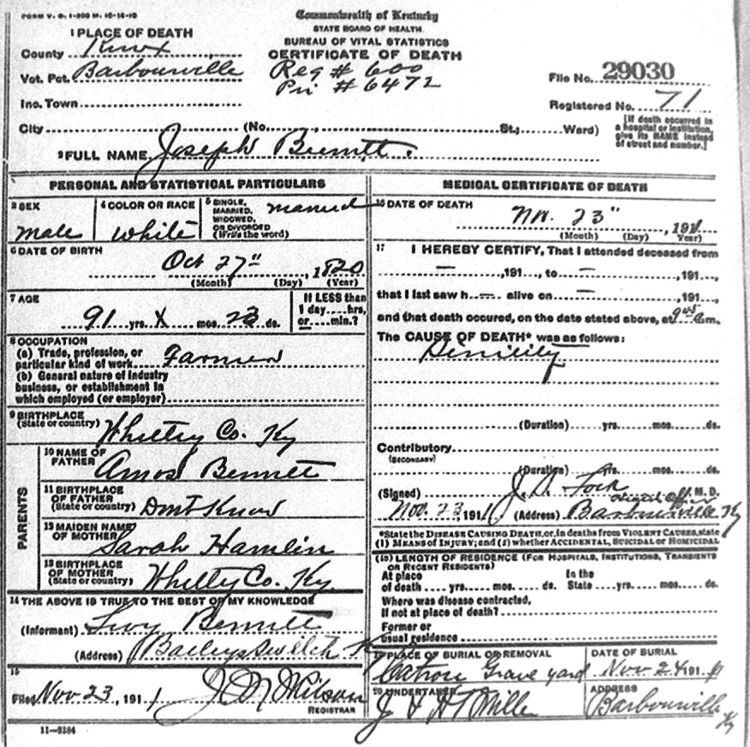 FORM V. S. 1-200 M. 10-15-10
Commonwealth of Kentucky
STATE BOARD OF HEALTH.
BUREAU OF VITAL STATISTICS
CERTIFICATE OF DEATH
1 PLACE OF DEATH
County Knox
Vot. Pct. Barbourville
Reg # 600
Pri # 6472
File No. 29030
Inc. Town
Registered No. 71
City (No. St.; Ward)
[If death occurred in a hospital or institution, give its NAME instead of street and number.]
2 FULL NAME Joseph Bennett.
PERSONAL AND STATISTICAL PARTICULARS
3 SEX
male
4 COLOR OR RACE
White
5 SINGLE, MARRIED, WIDOWED, OR DIVORCED (Write the word)
married
6 DATE OF BIRTH
Oct 27" , 1820
(Month) (Day) (Year)
7 AGE
91 yrs. X mos. 23 ds.
If LESS than 1 day ... hrs, or ... min.?
8 OCCUPATION
(a) Trade, profession, or particular kind of work Farmer
(b) General nature of industry business, or establishment in which employed (or employer)
9 BIRTHPLACE
(State or country) Whitley Co. Ky
PARENTS
10 NAME OF FATHER
Amos Bennett
11 BIRTHPLACE OF FATHER
(State or country) Dont Know
12 MAIDEN NAME OF MOTHER
Sarah Hamlin
13 BIRTHPLACE OF MOTHER
(State or country) Whitley Co. Ky
14 THE ABOVE IS TRUE TO THE BEST OF MY KNOWLEDGE
(Informant) Levy Bennett
(Address) Baileys Switch K
15
Filed Nov 23, 1911 J. N. Wilson
REGISTRAR
11-3184
MEDICAL CERTIFICATE OF DEATH
16 DATE OF DEATH
Nov. 23" , 1911
(Month) (Day) (Year)
17 I HEREBY CERTIFY, That I attended deceased from
— , 191 , to — , 191 ,
that I last saw h — alive on — , 191 ,
and that death occured, on the date stated above, at m.
The CAUSE OF DEATH* was as follows:
Senility
(Duration) yrs. mos. ds.
Contributory
(SECONDARY)
(Duration) yrs. mos. ds.
(Signed) J. A. M. D.
Nov. 23, 1911 (Address) Barbourville Ky
*State the DISEASE CAUSING DEATH, or, in deaths from VIOLENT CAUSES, state (1) MEANS OF INJURY; and (2) whether ACCIDENTAL, SUICIDAL OR HOMICIDAL
(18) LENGTH OF RESIDENCE (FOR HOSPITALS, INSTITUTIONS, TRANSIENTS OR RECENT RESIDENTS)
At place of death yrs. mos. ds. In the State yrs. mos. ds.
Where was disease contracted, If not at place of death?
Former or usual residence
19 PLACE OF BURIAL OR REMOVAL
Catron Grave yard
DATE OF BURIAL
Nov 24 1911
20 UNDERTAKER
J & H T Mille
ADDRESS
Barbourville Ky